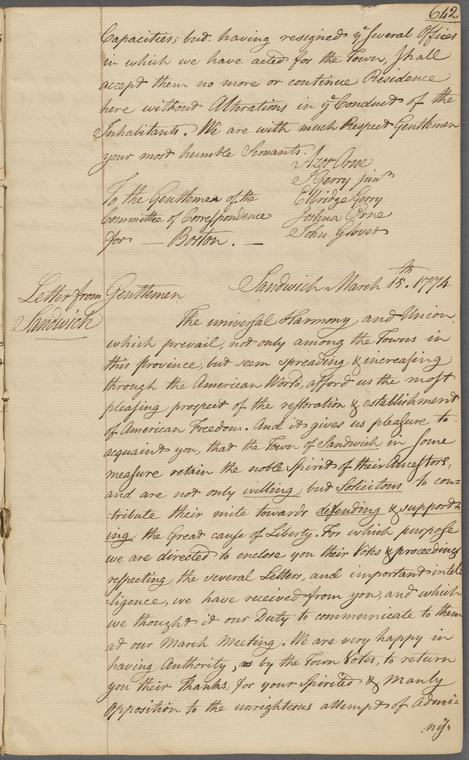 642
Capacities; but having resigned ye several Offices
in which we have acted for the Town, shall
accept them no more or continue Residence
here without Alterations in ye Conduct of the
Inhabitants. We are with much Respect Gentlemen
your most humble Servants.
Azor Orne
T Gerry junr
Elbridge Gerry
Joshua Orne
John Glover
To the Gentlemen of the
Committee of Correspondence
for — Boston. —
Sandwich March 15th. 1774
Letter from
Sandwich
Gentlemen
The universal Harmony, and Union
which prevail, not only among the Towns in
this province, but seem spreading & increasing
through the American World, afford us the most
pleasing prospect of the restoration & establishment
of American Freedom. And it gives us pleasure to
acquaint you, that the Town of Sandwich in some
measure retain the noble Spirit of their Ancestors,
and are not only willing but Solicitous to con-
-tribute their mite towards defending & support-
ing the Great cause of Liberty. For which purpose
we are directed to enclose you their Votes & proceedings
respecting the several Letters, and important intel-
-ligence, we have received from you, and which
we thought it our Duty to communicate to them
at our March Meeting. We are very happy in
having Authority, by the Town Votes, to return
you their Thanks, for your Spirited & Manly
opposition to the unrighteous attempt of Admi-
:nis-